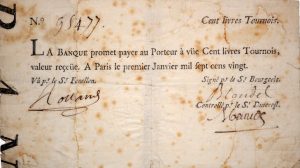 N.º 98477. Cent livres Tournois.
LA BANQUE promet payer au Porteur à vüe Cent livres Tournois,
valeur reçeüe. A Paris le premier Janvier mil sept cens vingt.
Vû p.r le S.r Fenellon. Signé p.r le S.r Bourgeois.
Controllé p.r le S.r Durevest.